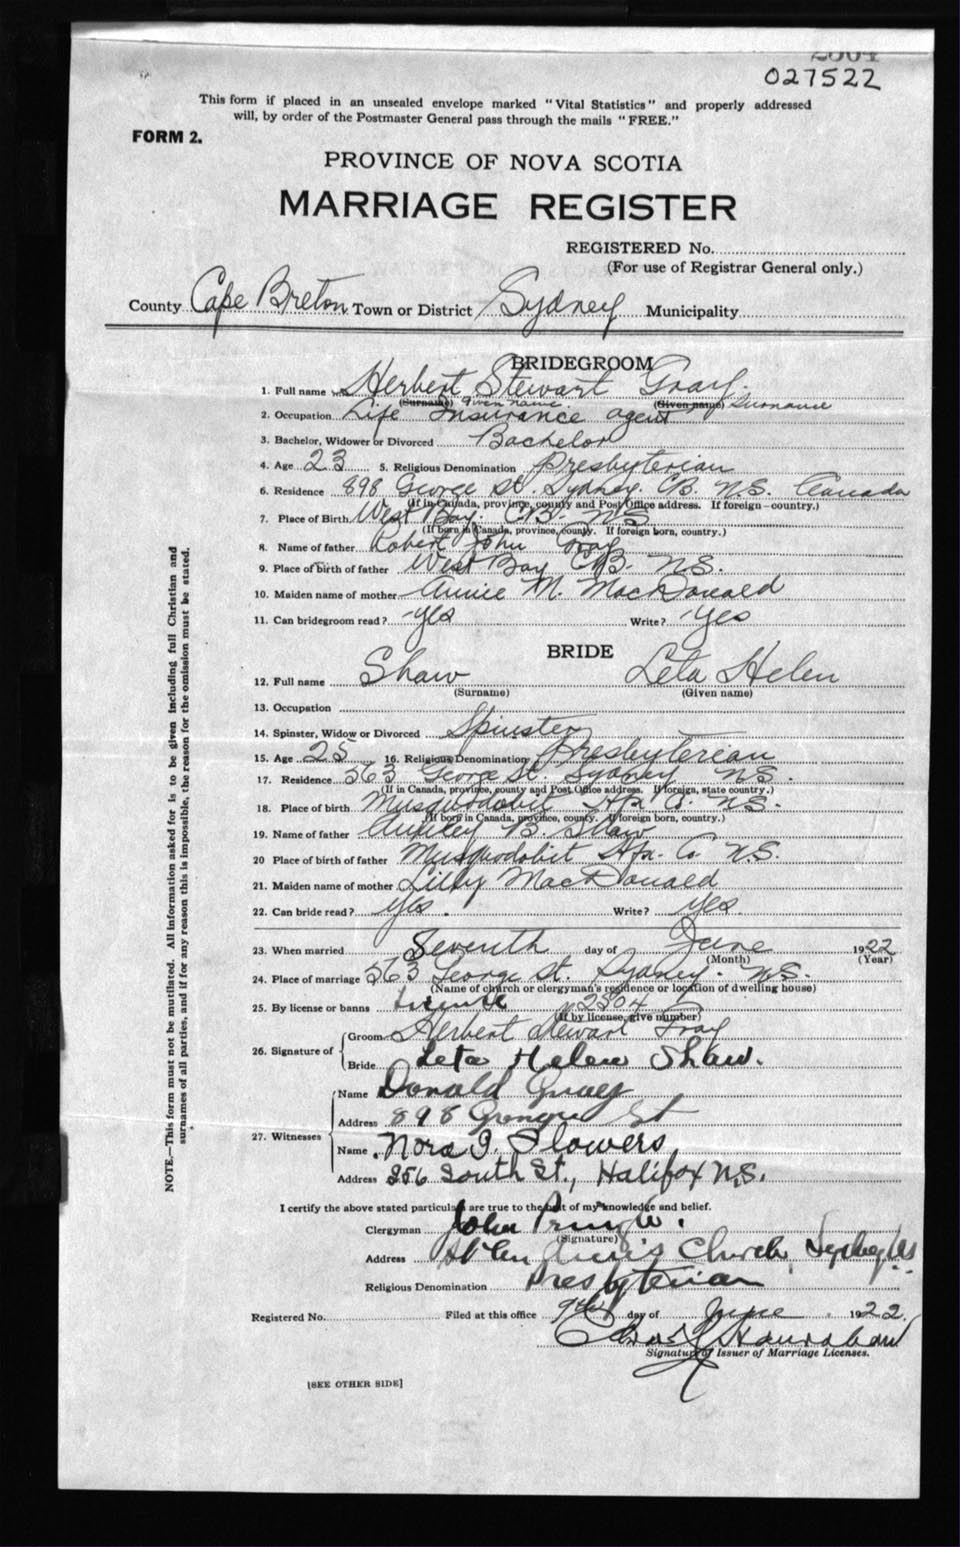 2504
027522
This form if placed in an unsealed envelope marked "Vital Statistics" and properly addressed
will, by order of the Postmaster General pass through the mails "FREE."
FORM 2.
PROVINCE OF NOVA SCOTIA
MARRIAGE REGISTER
REGISTERED No.
(For use of Registrar General only.)
County Cape Breton Town or District Sydney Municipality
BRIDEGROOM
1. Full name Herbert Stewart Gray.
(Surname) Given name (Given name) Surname
2. Occupation Life Insurance agent
3. Bachelor, Widower or Divorced Bachelor
4. Age 23 5. Religious Denomination Presbyterian
6. Residence 898 George St. Sydney. CB. N.S. Canada
(If in Canada, province, county and Post Office address. If foreign-country.)
7. Place of Birth West Bay. CB N.S
(If born in Canada, province, county. If foreign born, country.)
8. Name of father Robert John Gray
9. Place of birth of father West Bay CB. N.S.
10. Maiden name of mother Annie M. MacDonald
11. Can bridegroom read? Yes Write? Yes
BRIDE
12. Full name Shaw Leta Helen
(Surname) (Given name)
13. Occupation
14. Spinster, Widow or Divorced Spinster
15. Age 25 16. Religious Denomination Presbyterian
17. Residence 563 George St. Sydney N.S.
(If in Canada, province, county and Post Office address. If foreign, state country.)
18. Place of birth Musquodobit Hfx. Co. N.S.
(If born in Canada, province, county. If foreign born, country.)
19. Name of father B. Shaw
20 Place of birth of father Musquodobit Hfx. Co N.S.
21. Maiden name of mother Lilly MacDonald
22. Can bride read? Yes. Write? Yes.
23. When married Seventh day of June 1922
(Month) (Year)
24. Place of marriage 563 George St. Sydney. N.S.
(Name of church or clergyman's residence or location of dwelling house)
25. By license or banns License 2504
(If by license, give number)
26. Signature of
Groom Herbert Stewart Gray
Bride Leta Helen Shaw.
27. Witnesses
Name Donald Gray
Address 898 George St
Name Nora I. Flowers
Address 256 South St., Halifax N.S.
I certify the above stated particulars are true to the best of my knowledge and belief.
Clergyman John Pringle.
(Signature)
Address St Andrew's Church, Sydney NS
Religious Denomination Presbyterian
Registered No. Filed at this office 9th day of June 1922.
Signature of Issuer of Marriage Licenses.
[SEE OTHER SIDE]
NOTE.—This form must not be mutilated. All information asked for is to be given including full Christian and
surnames of all parties, and if for any reason this is impossible, the reason for the omission must be stated.